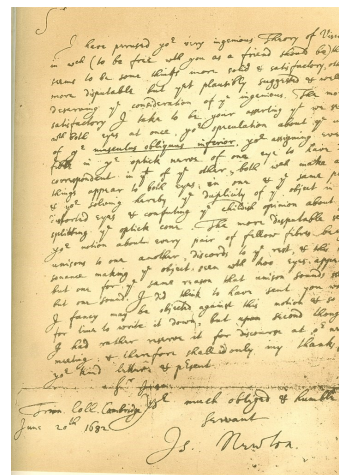 Sr
I have perused yor very ingenious Theory of Vision
in wch (to be free wth you as a friend should be) there
seems to be some things more solid & satisfactory, others
more disputable but yet plausibly suggested & well
deserving ye consideration of ye ingenious. The more
satisfactory I take to be your asserting yt we see
wth both eyes at once, yor speculation about ye use
of ye musculus obliquus inferior, yor assigning every
fibre in ye optick nerve of one eye to have its
correspondent in yt of ye other, both wch make all
things appear to both eyes in one & ye same place
& yor solving hereby ye duplicity of ye object in
distorted eyes & confuting ye childish opinion about ye
splitting ye optick cone. The more disputable seems
yor notion about every pair of fellow fibres being
unisons to one another, discords to ye rest, & this consonance
making ye object, seen with two eyes, appear
but one for ye same reason that unison sounds seem
but one sound. I did think to have sent you what
I fancy may be objected against this notion & so
for time to write it down, but upon second thoughts
I had rather reserve it for discourse at or next
meeting: & therefore shall add only my thanks for
yor kind letter & present.
Trin. Coll. Cambridge yor much obliged & humble
June 20th 1682 Servant
Is. Newton.